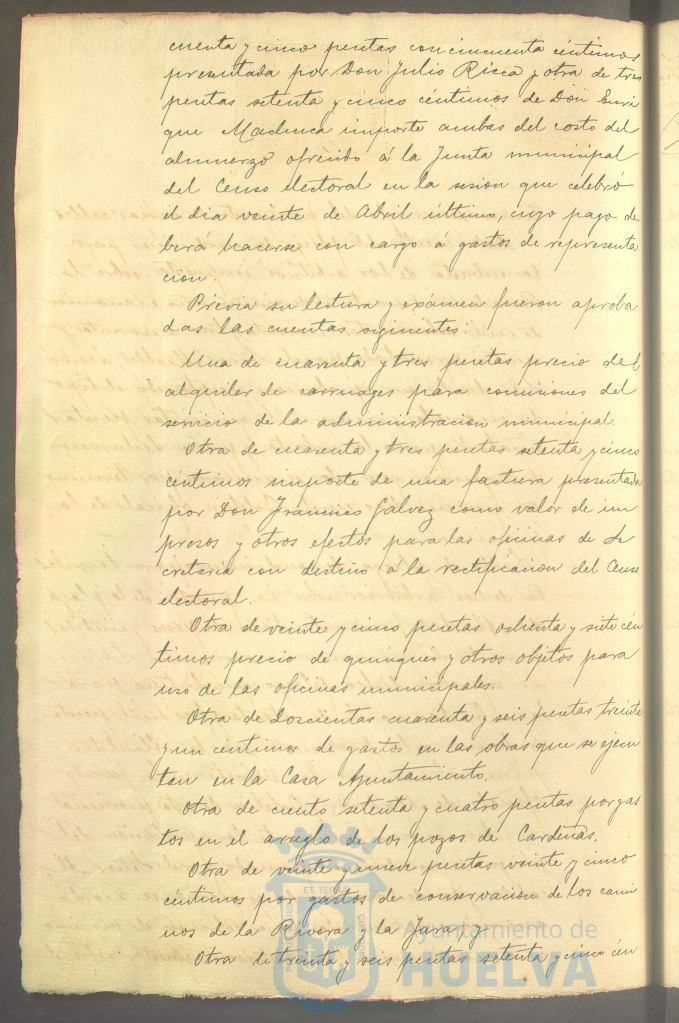 cuenta y cinco pesetas con cincuenta céntimos
presentada por Don Julio Ricca y otra de tres
pesetas setenta y cinco céntimos de Don Enri
que Machuca importe ambas del costo del
almuerzo ofrecido á la Junta municipal
del Censo electoral en la sesion que celebró
el dia veinte de Abril último, cuyo pago de
berá hacerse con cargo á gastos de representa
cion.
Prévia su lectura y exámen fueron aproba
das las cuentas siguientes:
Una de cuarenta y tres pesetas precio del
alquiler de carruages para comisiones del
servicio de la administracion municipal.
Otra de cuarenta y tres pesetas setenta y cinco
céntimos importe de una factura presentada
por Don Francisco Galvez como valor de im
presos y otros efectos para las oficinas de Se
cretaria con destino á la rectificacion del Censo
electoral.
Otra de veinte y cinco pesetas ochenta y siete cén
timos precio de quinqués y otros objetos para
uso de las oficinas municipales.
Otra de doscientas cuarenta y seis pesetas treinta
y un céntimos de gastos en las obras que se ejecu
tan en la Casa Ayuntamiento.
Otra de ciento setenta y cuatro pesetas por gas
tos en el arreglo de los pozos de Cardeñas.
Otra de veinte y nueve pesetas veinte y cinco
céntimos por gastos de conservacion de los cami
nos de la Rivera y la Jara, y
Otra de treinta y seis pesetas setenta y cinco cén
Ayuntamiento de
HUELVA